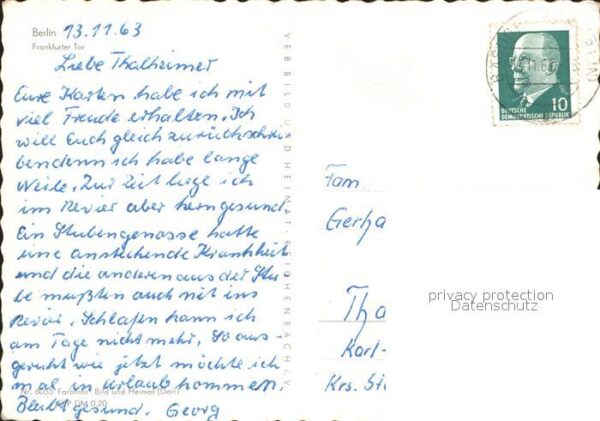 Berlin 13.11.63
Frankfurter Tor
Liebe Thalheimer
Eure Karten habe ich mit
viel Freude erhalten. Ich
will Euch gleich zurückschrei-
ben denn ich habe lange
Weile. Zur Zeit liege ich
im Revier aber kerngesund.
Ein Stubengenosse hatte
eine ansteckende Krankheit
und die anderen aus der Stu-
be mußten auch mit ins
Revier. Schlafen kann ich
am Tage nicht mehr. So aus-
geruht wie jetzt möchte ich
mal in Urlaub kommen.
Bleibt gesund. Georg
Nr. 6055 Farbfoto: Bild und Heimat (Darr)
EVP DM 0.20
VEB BILD UND HEIMAT · REICHENBACH I. V.
10
DEUTSCHE
DEMOKRATISCHE REPUBLIK
Fam.
Gerha
Tha
Karl-
Krs. Str
privacy protection
Datenschutz